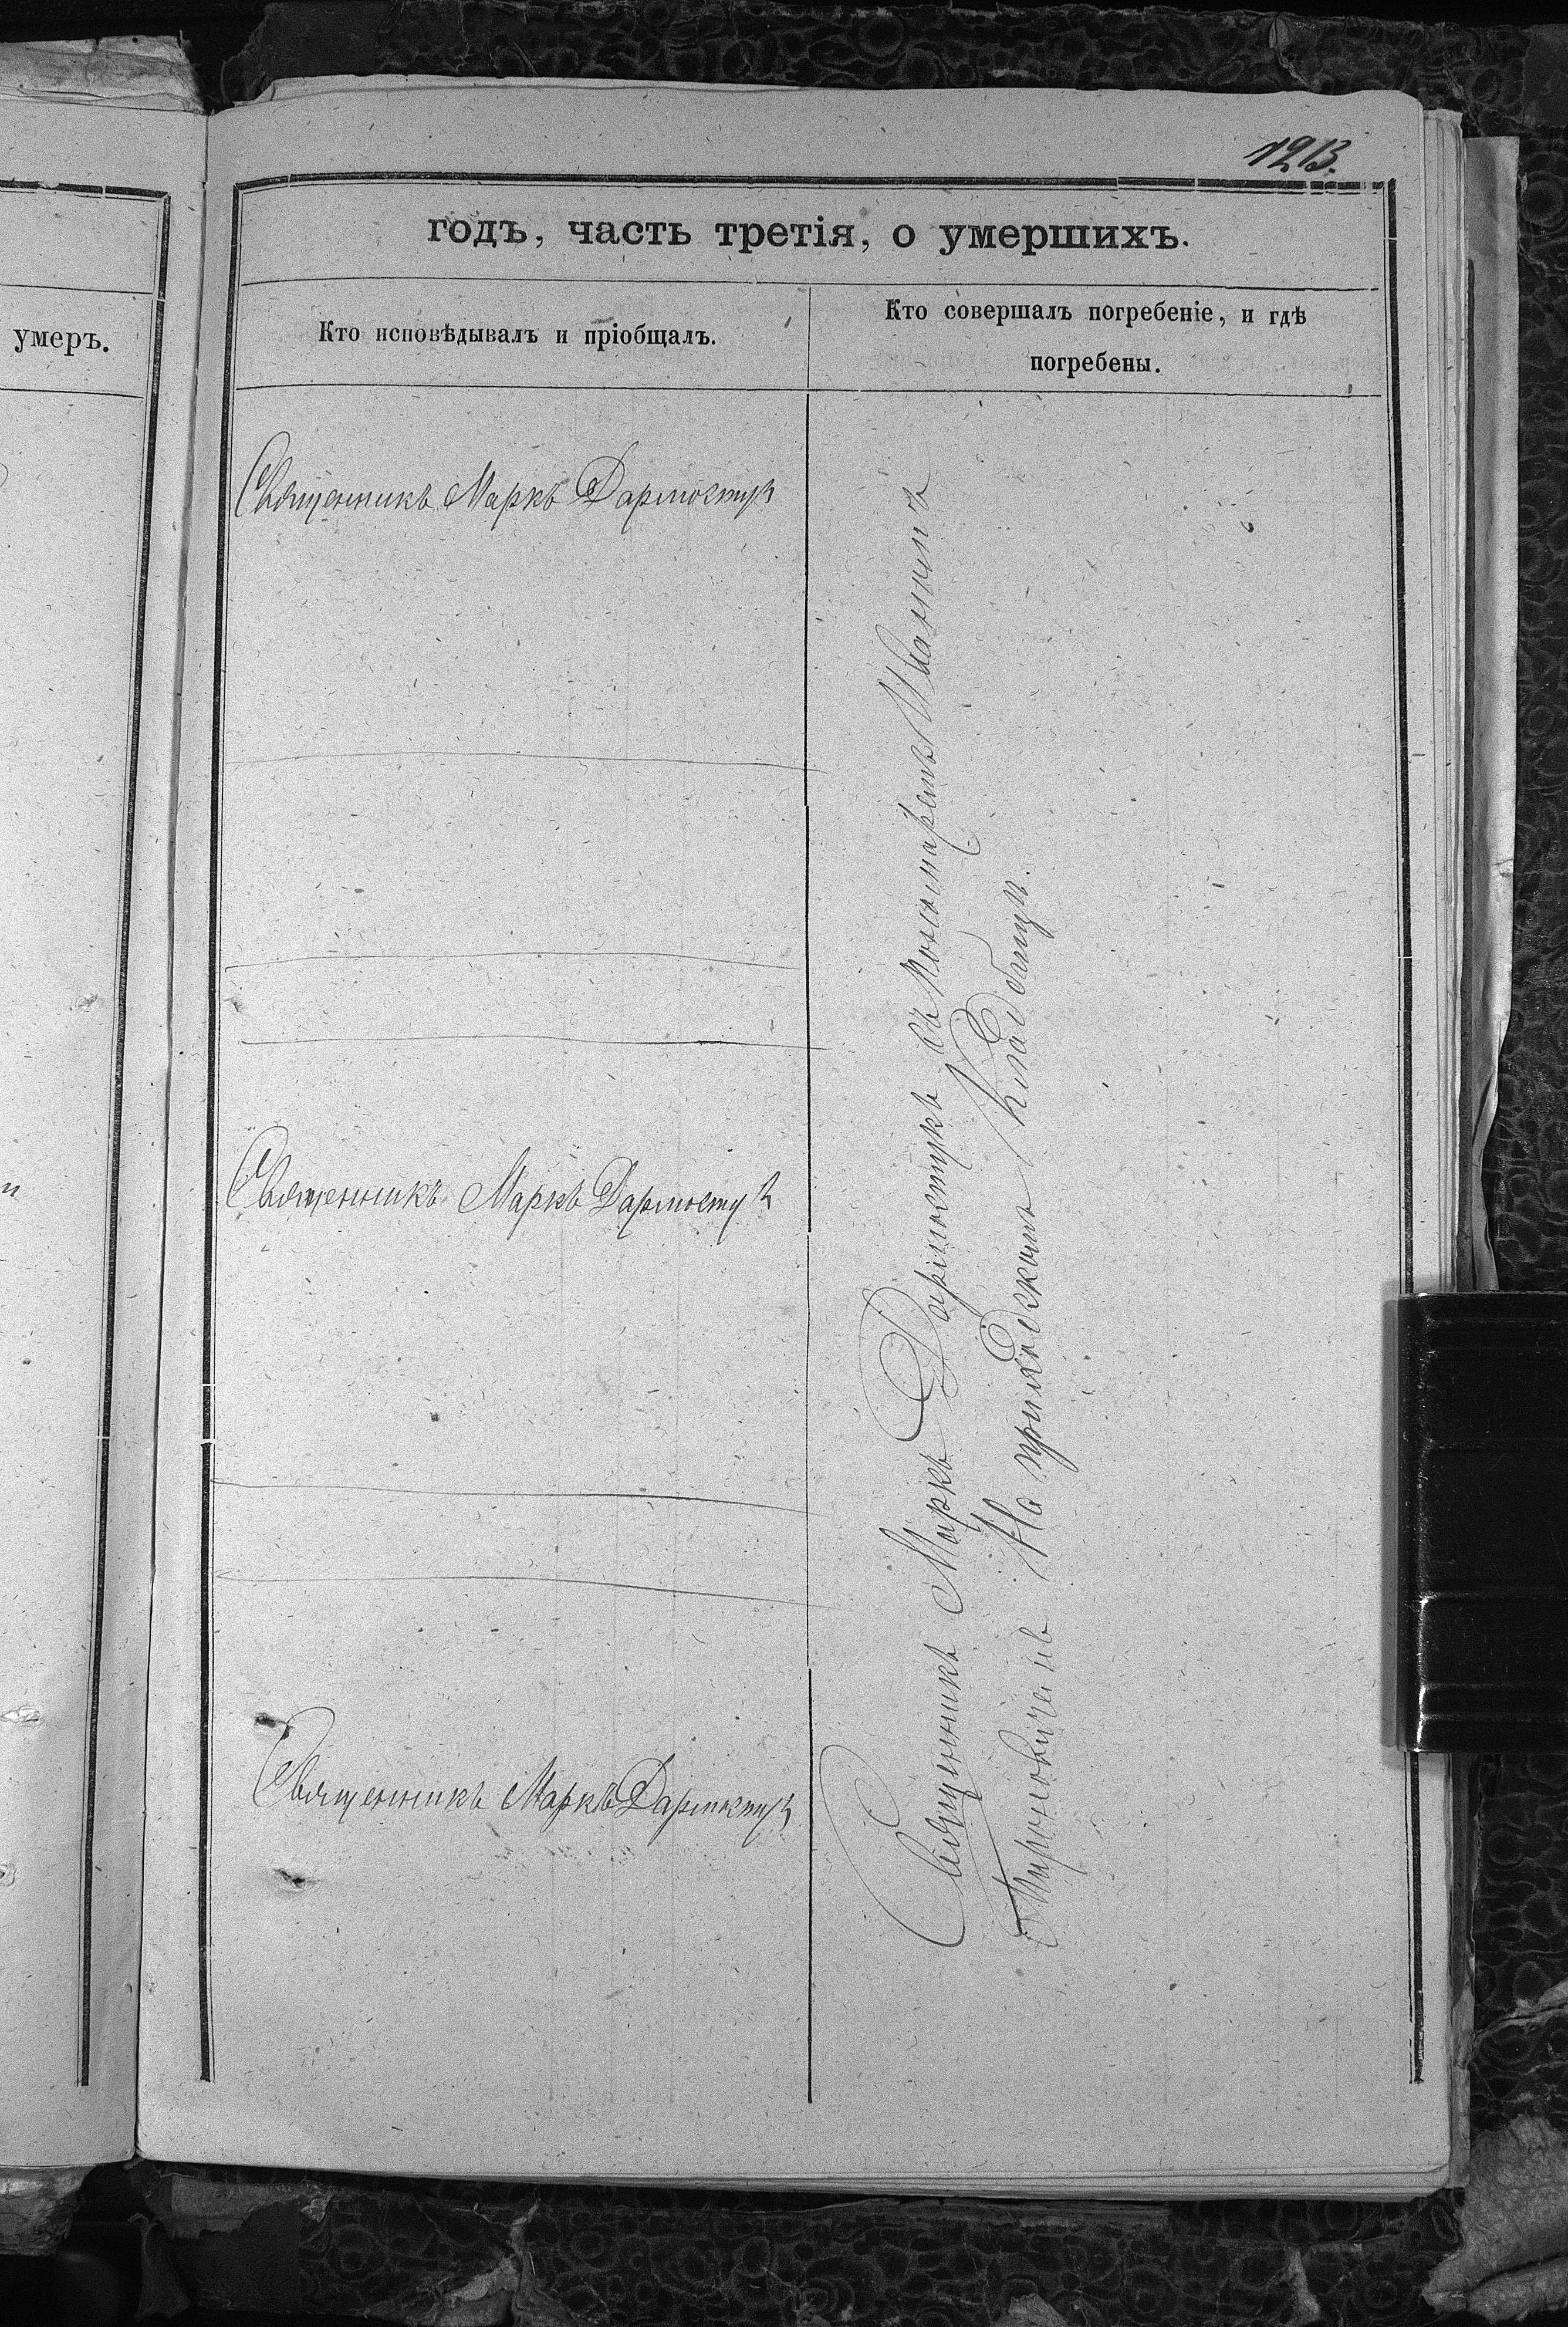 1213.
годъ, часть третія, о умершихъ.
умеръ.
Кто исповѣдывалъ и пріобщалъ.
Кто совершалъ погребеніе, и гдѣ
погребены.
Священникъ Маркъ Дармостук
Священникъ Маркъ Дармостук
Священникъ Маркъ Дармостук
Священникъ Маркъ Дармостукъ съ Пономаремъ
Мироновичемъ На приходскомъ Кладбищѣ.